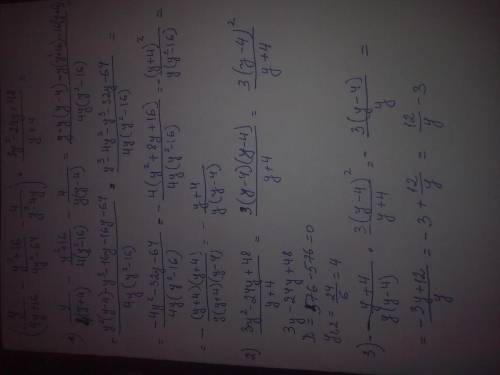 (y/(4y+16) - (y²+16)/(4y²-64) - 4/(y²-4y)) · (3y²-24y+48)/(y+4) =
1) y/(4(y+4)) - (y²+16)/(4(y²-16)) - 4/(y(y-4)) = (y·y(y-4)-y(y²+16)-16(y+4))/(4y(y²-16)) =
= (y²(y-4)-y³-16y-16y-64)/(4y(y²-16)) = (y³-4y²-y³-32y-64)/(4y(y²-16)) =
= (-4y²-32y-64)/(4y(y²-16)) = - 4(y²+8y+16)/(4y(y²-16)) = - (y+4)²/(y(y²-16)) =
= - (y+4)(y+4)/(y(y+4)(y-4)) = - (y+4)/(y(y-4))
2) (3y²-24y+48)/(y+4) = 3(y-4)(y-4)/(y+4) = 3(y-4)²/(y+4)
3y-24y+48
D=576-576=0
y₁,₂=24/6=4
3) - (y+4)/(y(y-4)) · 3(y-4)²/(y+4) = - 3(y-4)/y =
= (-3y+12)/y = -3+12/y = 12/y - 3